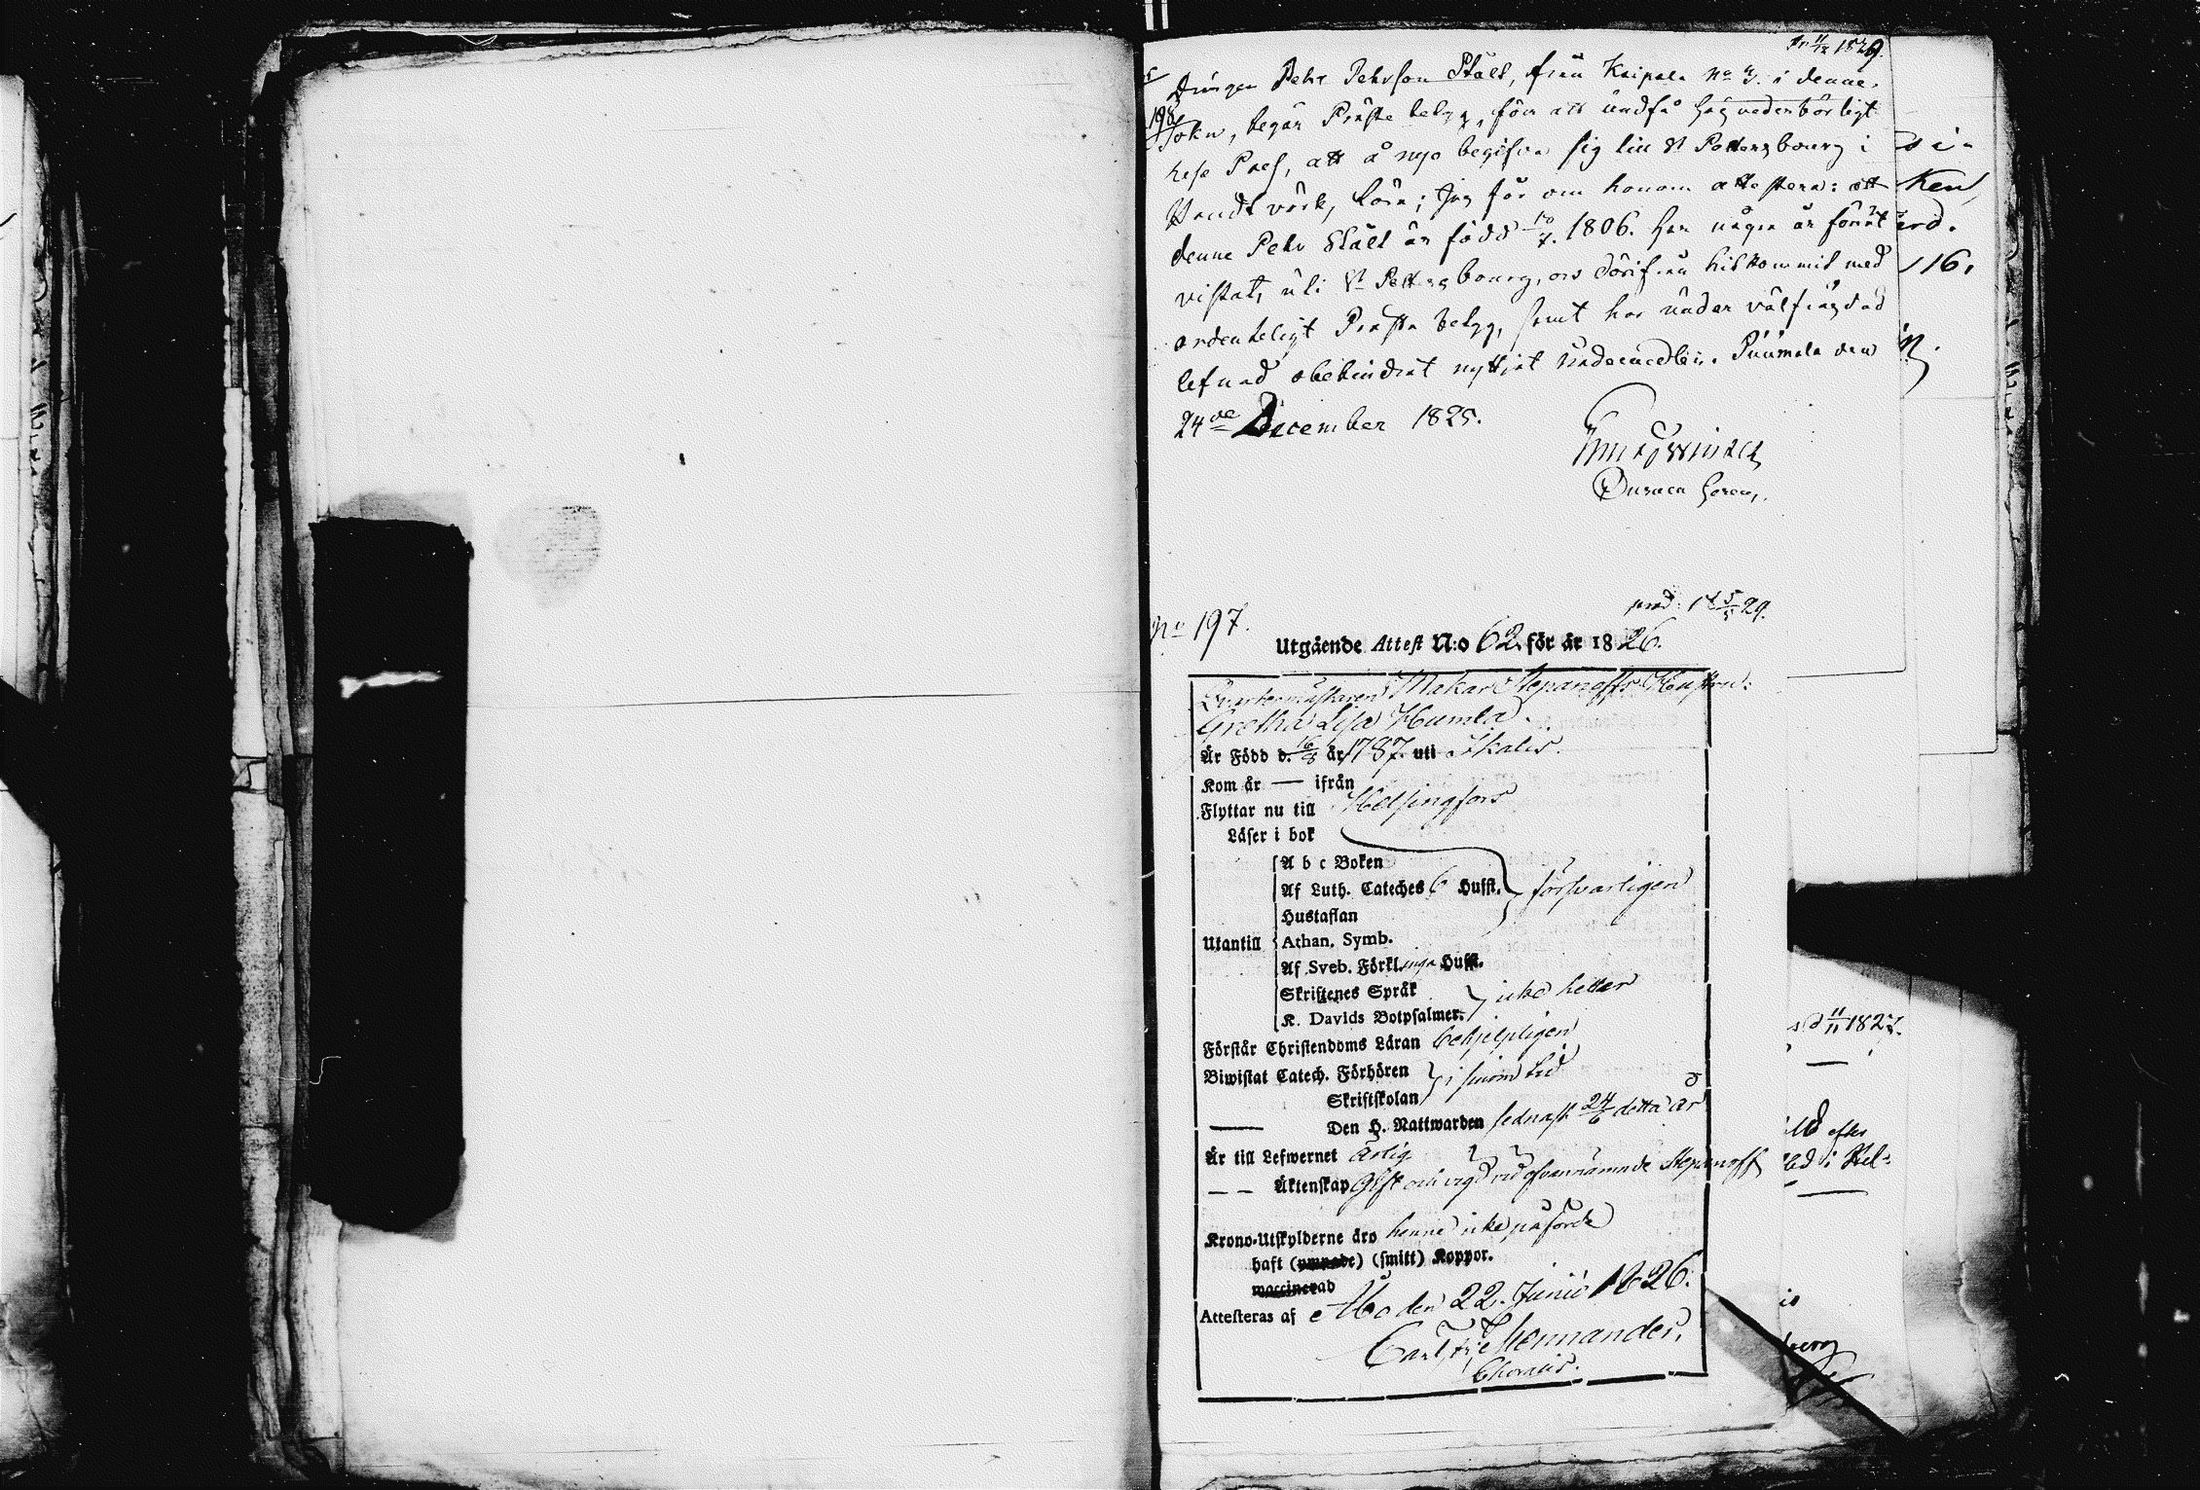 11/12 1829.
198
Drängen Petr Pehrson Ståls, från Kaipala No 4. i denna
Sokn, begär Präste betyg, för att undfå höga vederbörligt
rese Pass, att å nyo begifva sig till St Pettersbourg i
Handtvärks lära; Jag får om honom attestera: att
denne Petr Ståls är född 10/7. 1806. har några år förut
vistats uti St Pettersbourg, och därifrån hitkommit med
ordenteligt Prästa betyg, samt har under välfrägdad
lefnad obehindrat nyttjat Nådemedlen. Puumala den
24de December 1825.
No 197.
prod: 18 5/5 29.
Utgående Attest N:o 62. för år 1826.
Makar Stepanoffs Hustru:
Gretha Lisa Humla.
Är Född d. 16/8 år 1787. uti Ikalis.
Kom år — ifrån
Flyttar nu till Helsingfors
Läser i bok
A b c Boken
Af Luth. Cateches 6 Husst. försvarligen
Hustaflan
Utantill Athan. Symb.
Af Sveb. Förkl. inga Husst.
Skriftenes Språk icke heller
K. Davids Botpsalmer.
Förstår Christendoms Läran behjelpligen
Biwistat Catech. Förhören i sinom tid
Skriftskolan
Den H. Nattwarden sednast 24/6 detta år
Är till Lefwernet ärlig
— — Äktenskap Gift och vigd vid ofvannämnde Stepanoff
Krono-Utskylderne äro henne icke påförde
haft (ympade) (smitt) Koppor.
waccinerad
Attesteras af Åbo den 22. Junii 1826.
Mennander,
11/11 1827.
efter